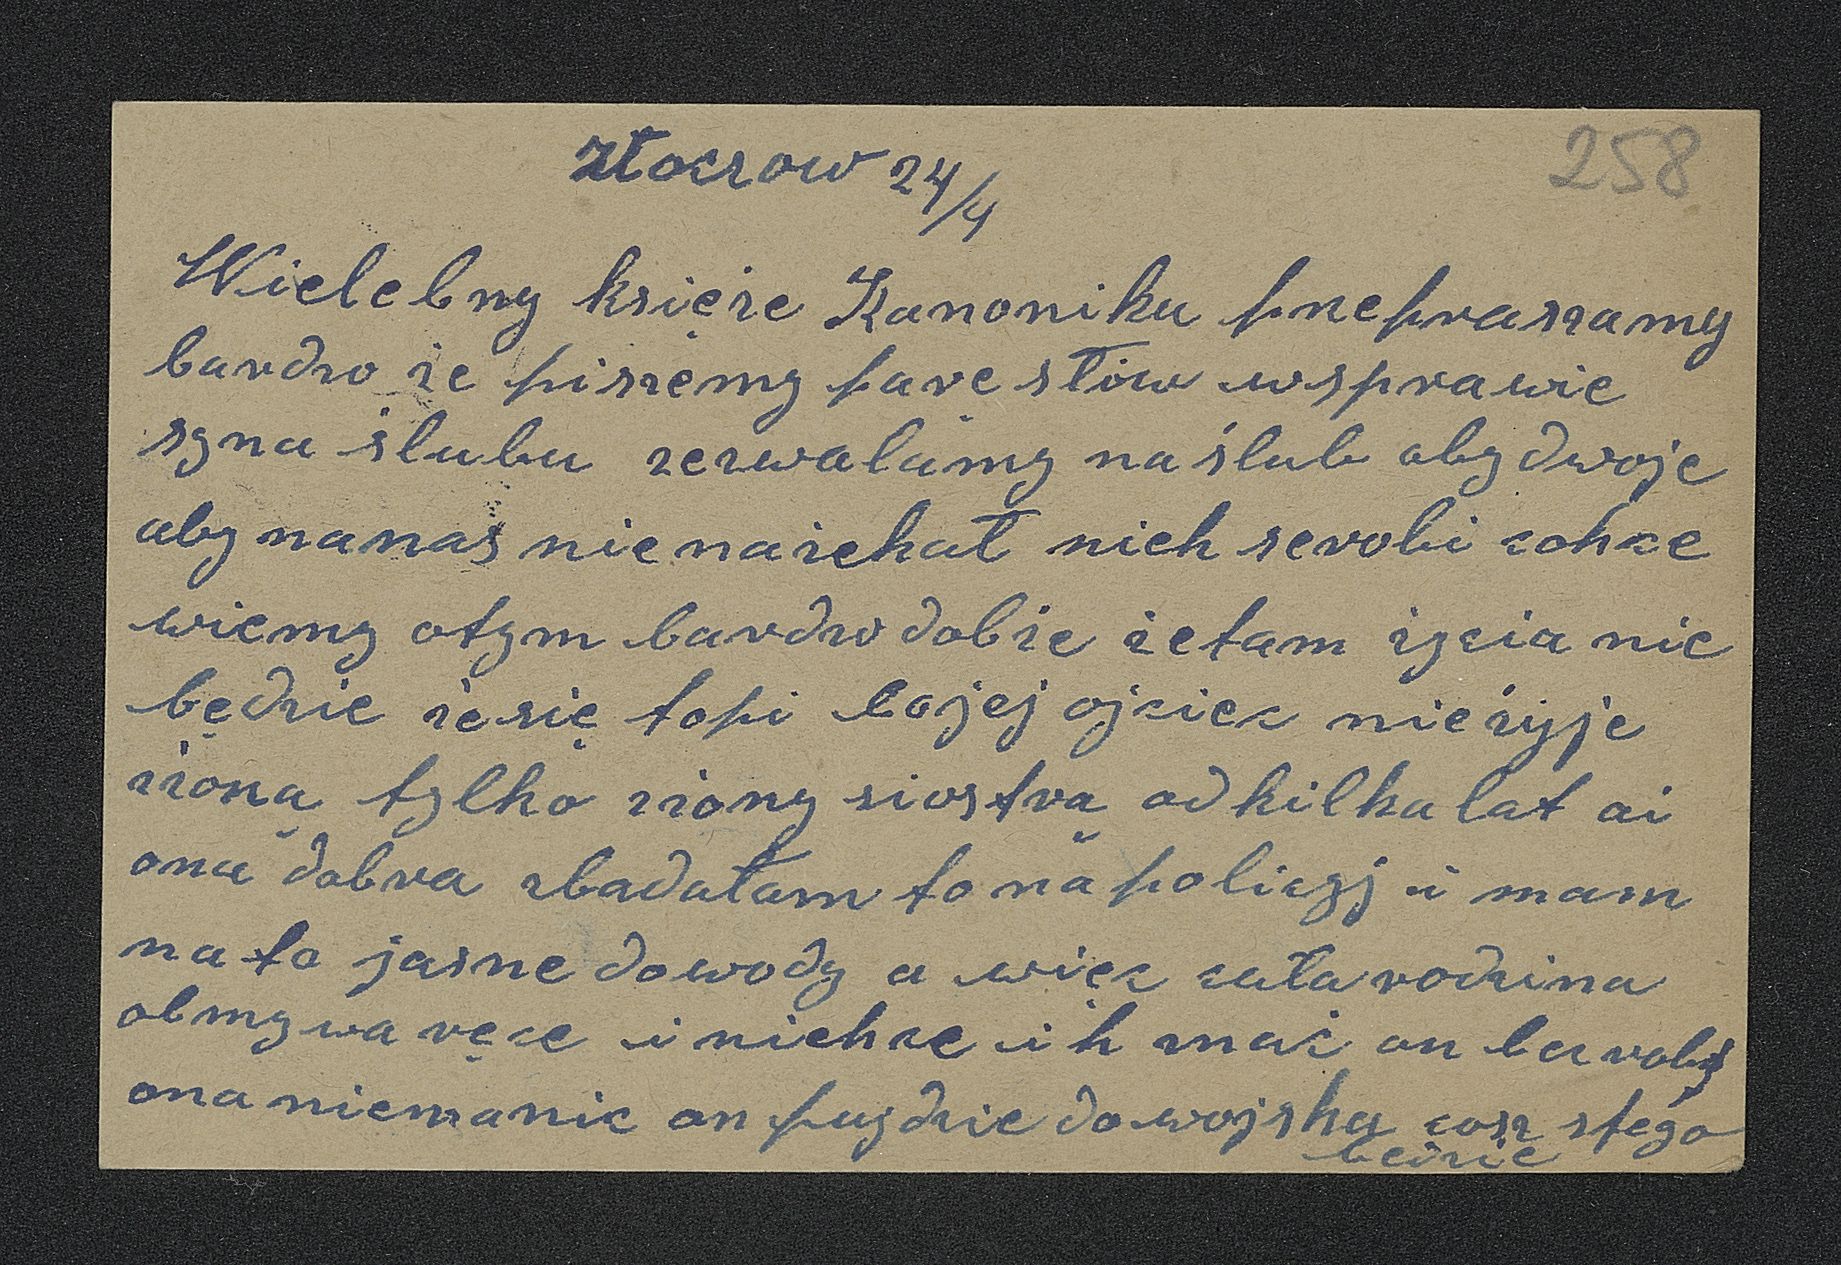 złoczow 24/4
258
Wielebny księże Kanoniku pszepraszamy
bardzo że piszemy pare słów wsprawie
syna ślubu zezwalamy naślub obydwoje
aby nanas nienażekał niech serobi cohce
wiemy otym bardzo dobże żetam życia nie
będzie żesię topi bojej ojciec nieżyje
zżoną tylko zżony siostrą odkilkulat ai
ona dobra zbadałam to napolicyj i mam
nato jasne dowody a więc całarodzina
obmywa ręce i niehce ih znać on bezroby
ona niemanic on pujdzie dowojska cosz stego
bedzie